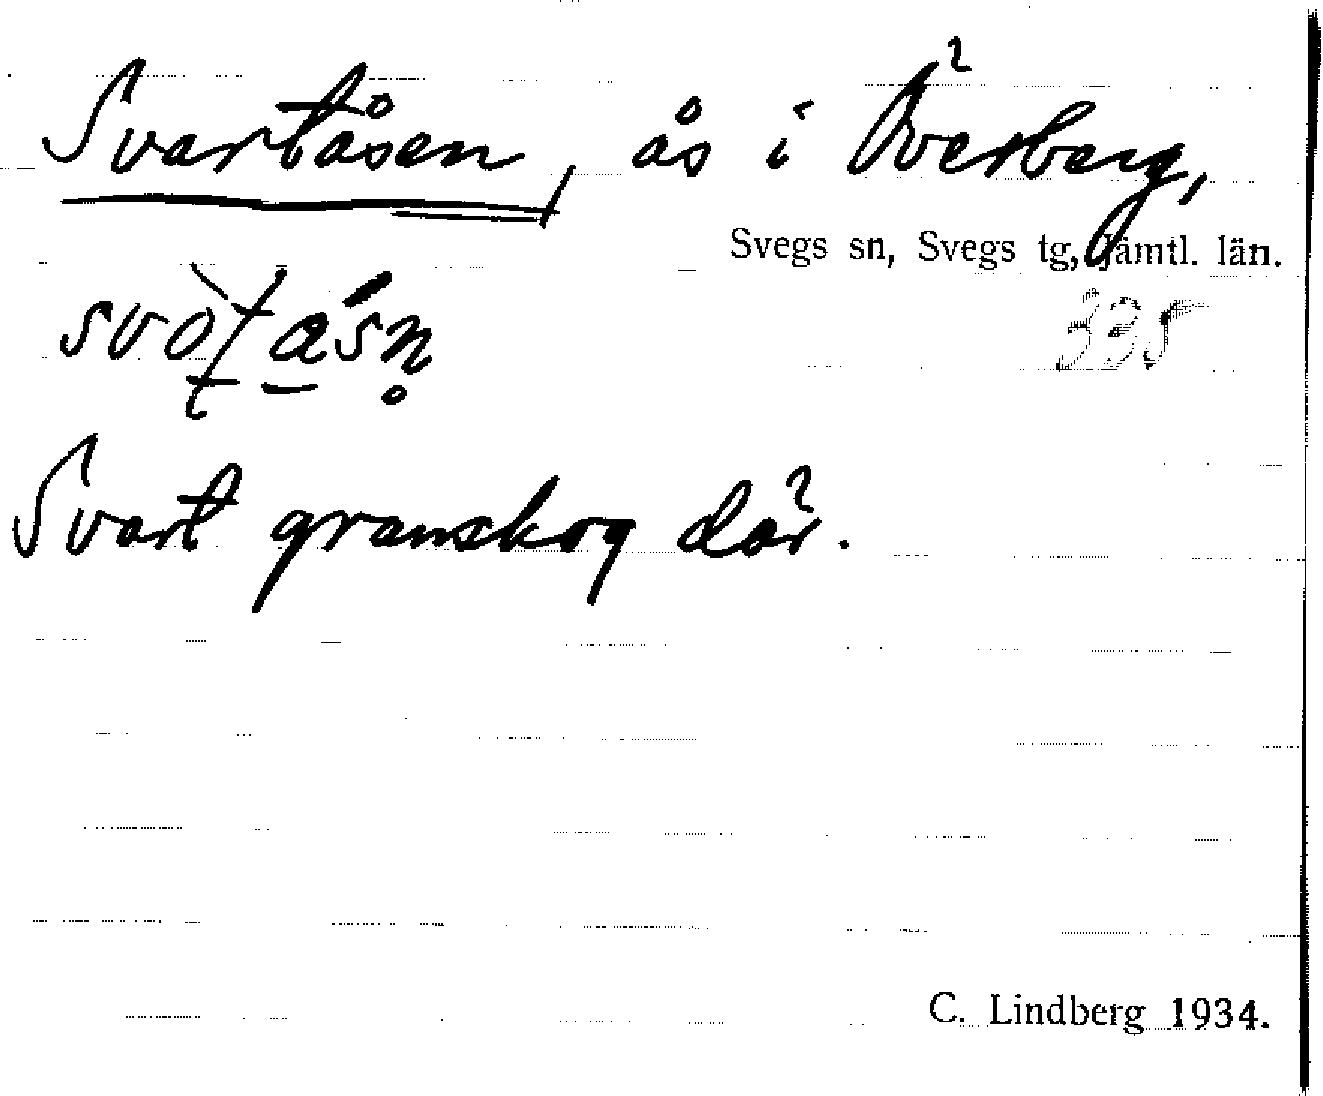 Svartåsen, ås i Överberg,
Svegs sn, Svegs tg, Jämtl. län.
395
Svart granskog där.
C. Lindberg 1934.